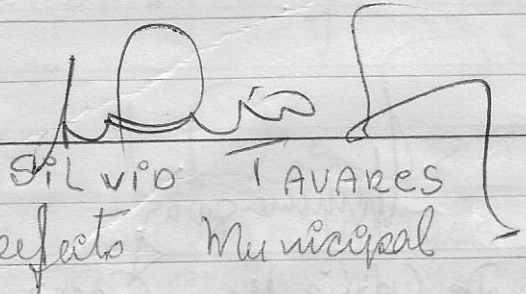 SiLviO TAVARES
efeito Municipal